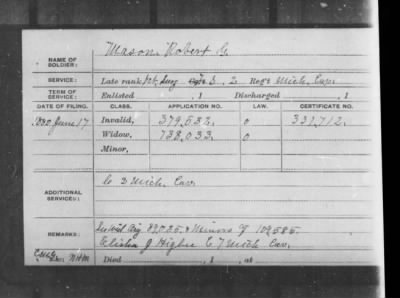 NAME OF SOLDIER: Mason, Robert G.
SERVICE: Late rank, Reg't Mich. Cav.
TERM OF SERVICE: Enlisted , 1 Discharged , 1
DATE OF FILING. CLASS. APPLICATION NO. LAW. CERTIFICATE NO.
1880 June 17 Invalid, 379,582. 0 331,712.
Widow, 738,033. 0
Minor,
ADDITIONAL SERVICES: Mich. Cav.
REMARKS: Minors 109,585.
J Higbee Mich Cav.
Died , 1 , at